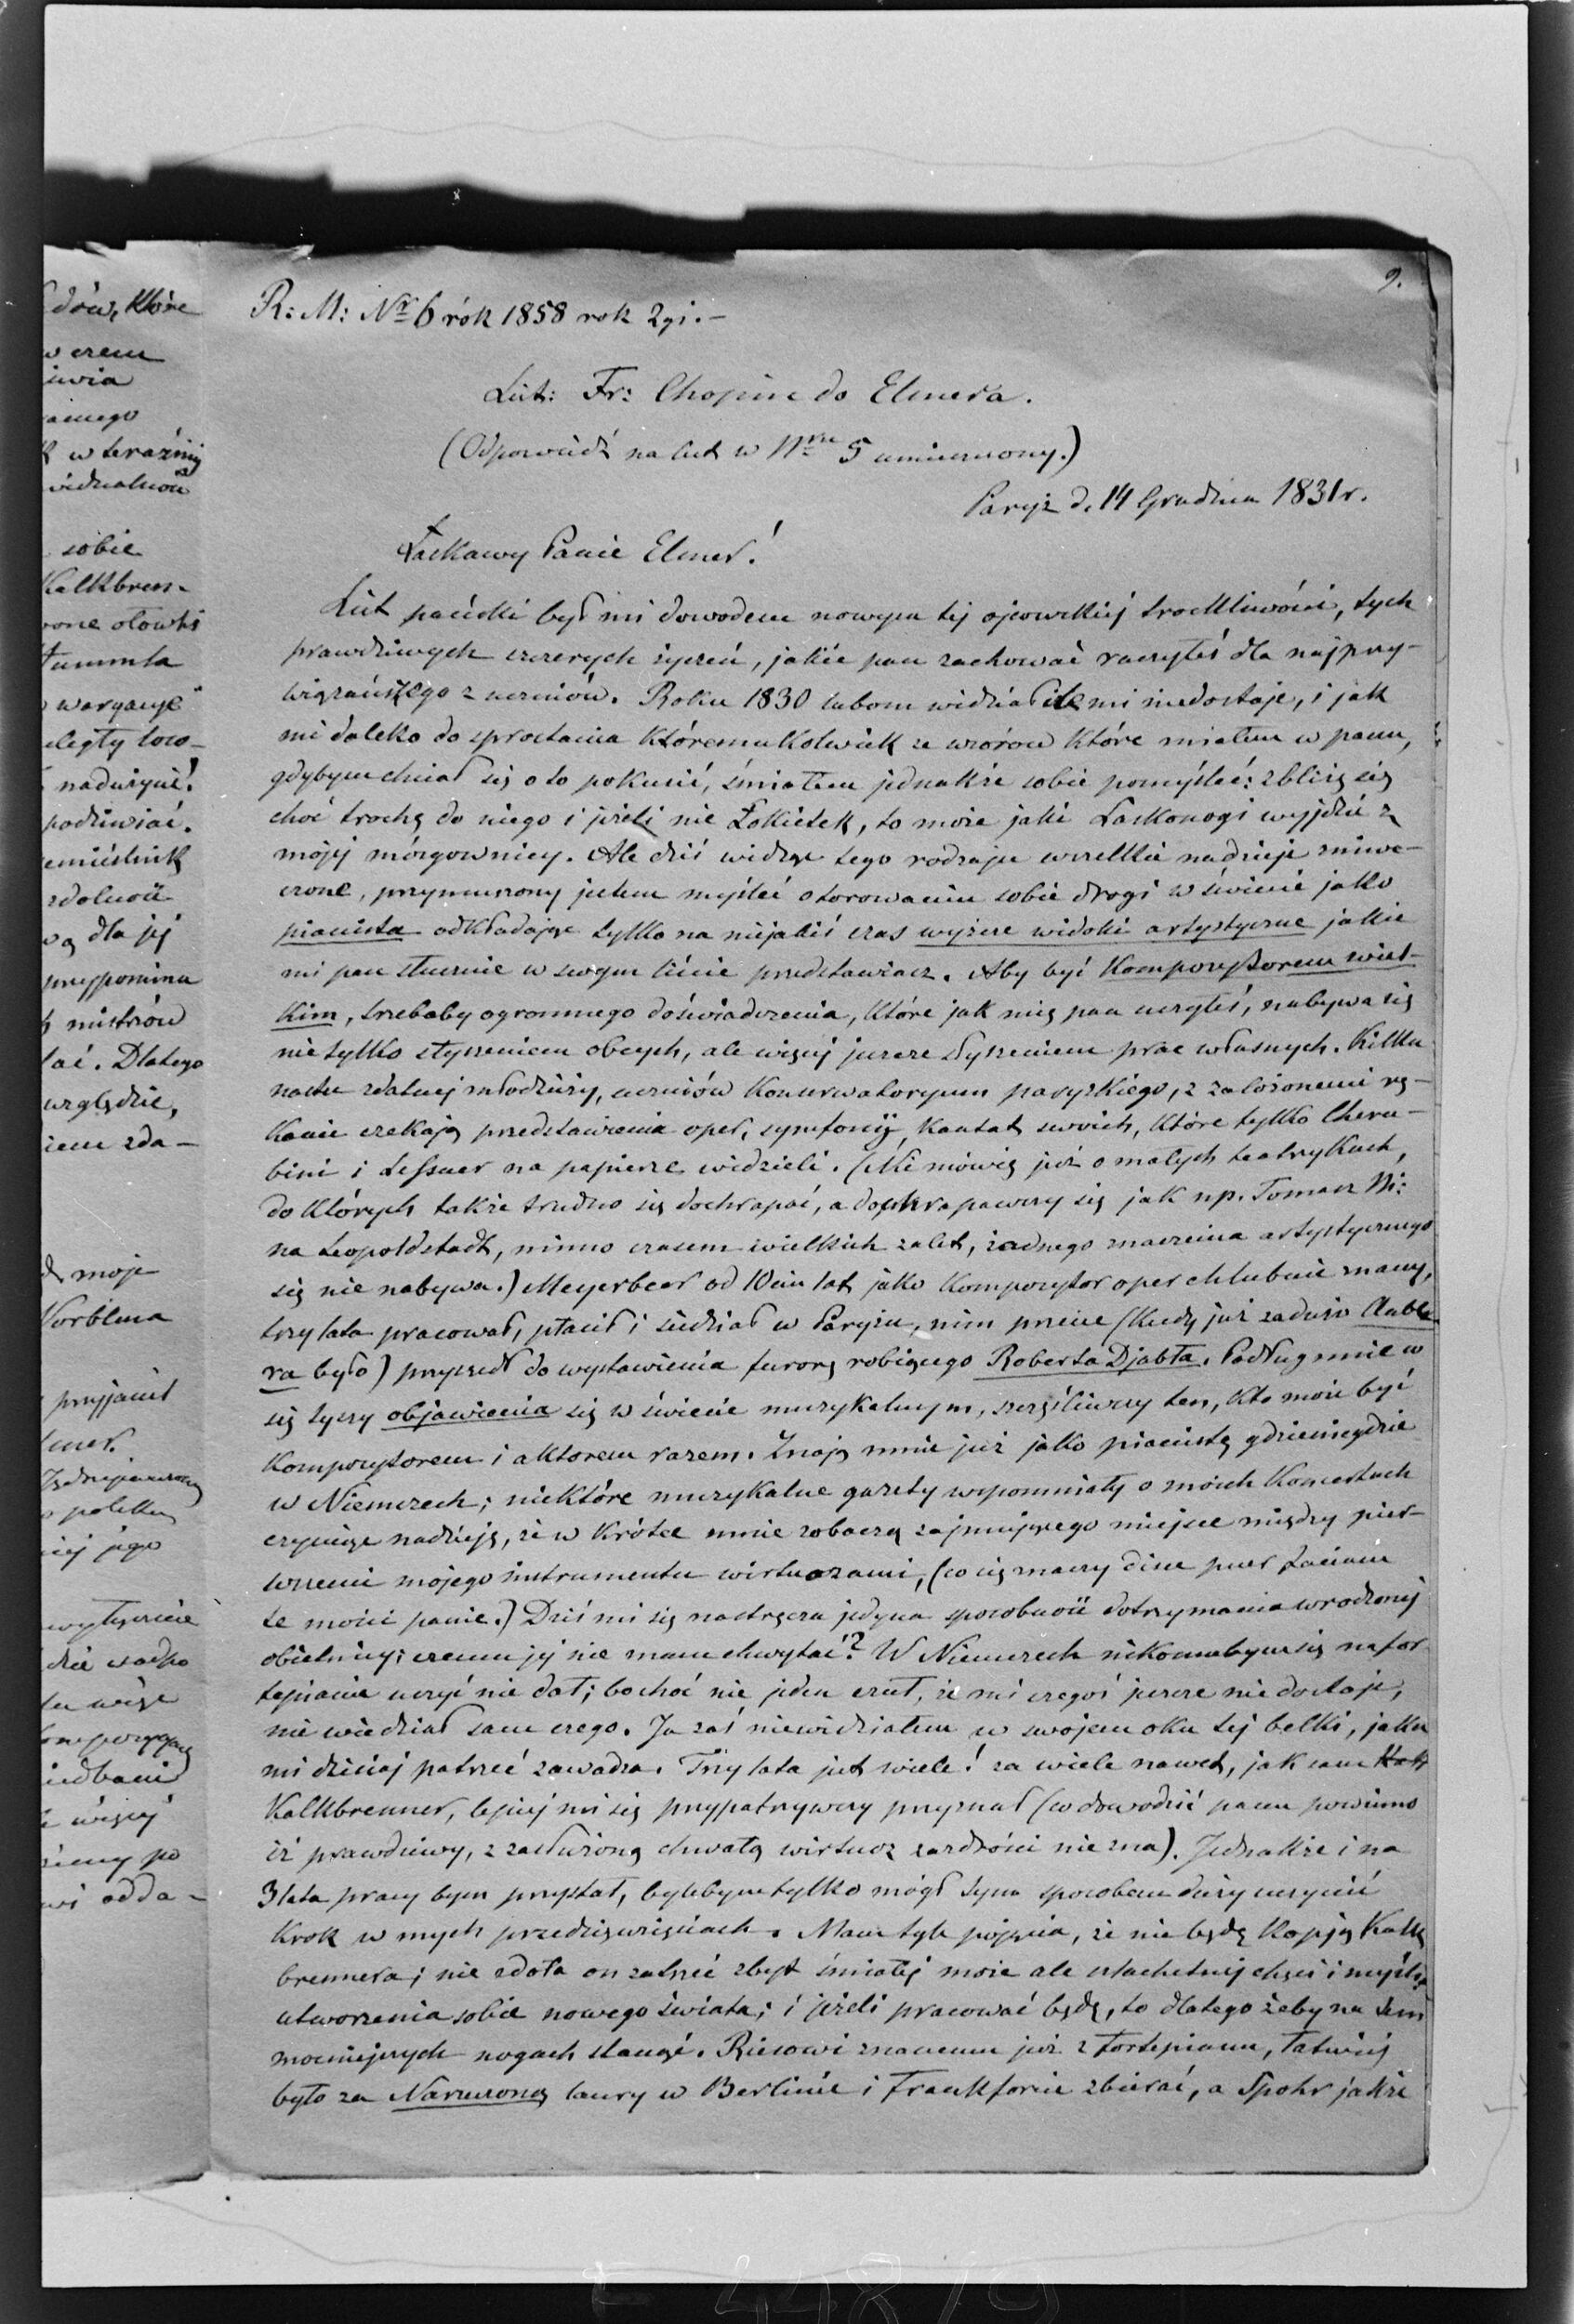 9.
R: M: Nr 6 rók 1858 rok 2gi. –
List: Fr: Chopina do Elsnera.
(Odpowiedź na list w Nrze 5 umieszczony.)
Paryż d. 14 Grudnia 1831 r.
Łaskawy Panie Elsner!
List pański był mi dowodem nowym tej ojcowskiej troskliwości, tych
prawdziwych szczerych życzeń, jakie pan zachować raczyłeś dla najprzy-
wiązańszego z uczniów. Roku 1830 lubom widział ile mi niedostaje, i jak
mi daleko do sprostania któremukolwiek ze wzorów które miałem w panu,
gdybym chciał się o to pokusić, śmiałem jednakże sobie pomyśleć: zbliżę się
choć trochę do niego i jeżeli nie Łokietek, to może jaki Laskonogi wyjdzie z
mojej mózgownicy. Ale dziś widzę tego rodzaju wszelkie nadzieje zniwe-
czone, przymuszony jestem myśleć o torowaniu sobie drogi w świecie jako
pianista odkładając tylko na niejakiś czas wyższe widoki artystyczne jakie
mi pan słusznie w swym liście przedstawiasz. Aby być kompozytorem wiel-
kim, trzebaby ogromnego doświadczenia, które jak mię pan uczyłeś, nabywa się
nie tylko słyszeniem obcych, ale więcej jeszcze słyszeniem prac własnych. Kilku
nastu zdatnej młodzieży, uczniów Konserwatoryum paryzkiego, z założonemi rę-
kami czekają przedstawienia oper, symfonij, kantat swoich, które tylko Cheru-
bini i Lessuer na papierze widzieli. (Nie mówię już o małych teatrykach,
do których także trudno się dochrapać, a dochrapawszy się jak np. Tomasz Ni:
na Leopoldstadt, mimo czasem wielkich zalet, żadnego znaczenia artystycznego
się nie nabywa.) Meyerbeer od 10ciu lat jako kompozytor oper chlubnie znany,
trzy lata pracował, płacił i siedział w Paryżu, nim przecie (kiedy już zadużo Aube
ra było) przyszedł do wystawienia furorę robiącego Roberta Djabła. Podług mnie co
się tyczy objawienia się w świecie muzykalnym, szczęśliwszy ten, kto może być
kompozytorem i aktorem razem. Znają mnie już jako pianistę gdzieniegdzie
w Niemczech; niektóre muzykalne gazety wspomniały o moich koncertach
czyniąc nadzieję, że w krótce mnie zobaczą zajmującego miejsce między pier-
wszemi mojego instrumentu wirtuozami, (co się znaczy disce puer
te mości panie.) Dziś mi się nastręcza jedyna sposobność dotrzymania wrodzonej
obietnicy; czemu jej nie mam chwytać? W Niemczech nikomubym się na for-
tepianie uczyć nie dał; bo choć nie jeden czuł, że mi czegoś jeszcze nie dostaje,
nie wiedział sam czego. Ja zaś niewidziałem w swojem oku tej belki, jaka
mi dzisiaj patrzeć zawadza. Trzy lata jest wiele! za wiele nawet, jak sam Kalk
Kalkbrenner, lepiej mi się przypatrzywszy przyznał (co dowodzić panu powinno
iż prawdziwy, z zasłużoną chwałą wirtuoz zazdrości nie zna). Jednakże i na
3 lata pracy bym przystał, bylebym tylko mógł tym sposobem duży uczynić
krok w mych przedsięwzięciach. Mam tyle pojęcia, że nie będę kopją Kalk
brennera; nie zdoła on zatrzeć zbyt śmiałej może ale szlachetnej chęci i myśli
utworzenia sobie nowego świata; i jeżeli pracować będę, to dlatego żeby na tem
mocniejszych nogach stanąć. Riesowi znanemu już z fortepianu, łatwiej
było za Narzeczoną laury w Berlinie i Frankforcie zbierać, a Spohr jakże
dów, które
w czem
sobie
Kalkbren-
podziwiać.
rzemieślnik
dla jej
przypomina
mistrzów
Dlatego
względzie,
zda-
moje
więcej
odda-